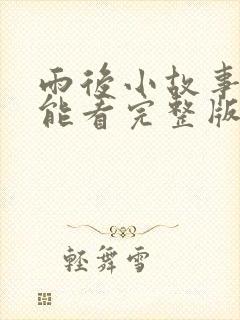 雨後小故事
能看完整版
輕舞雪